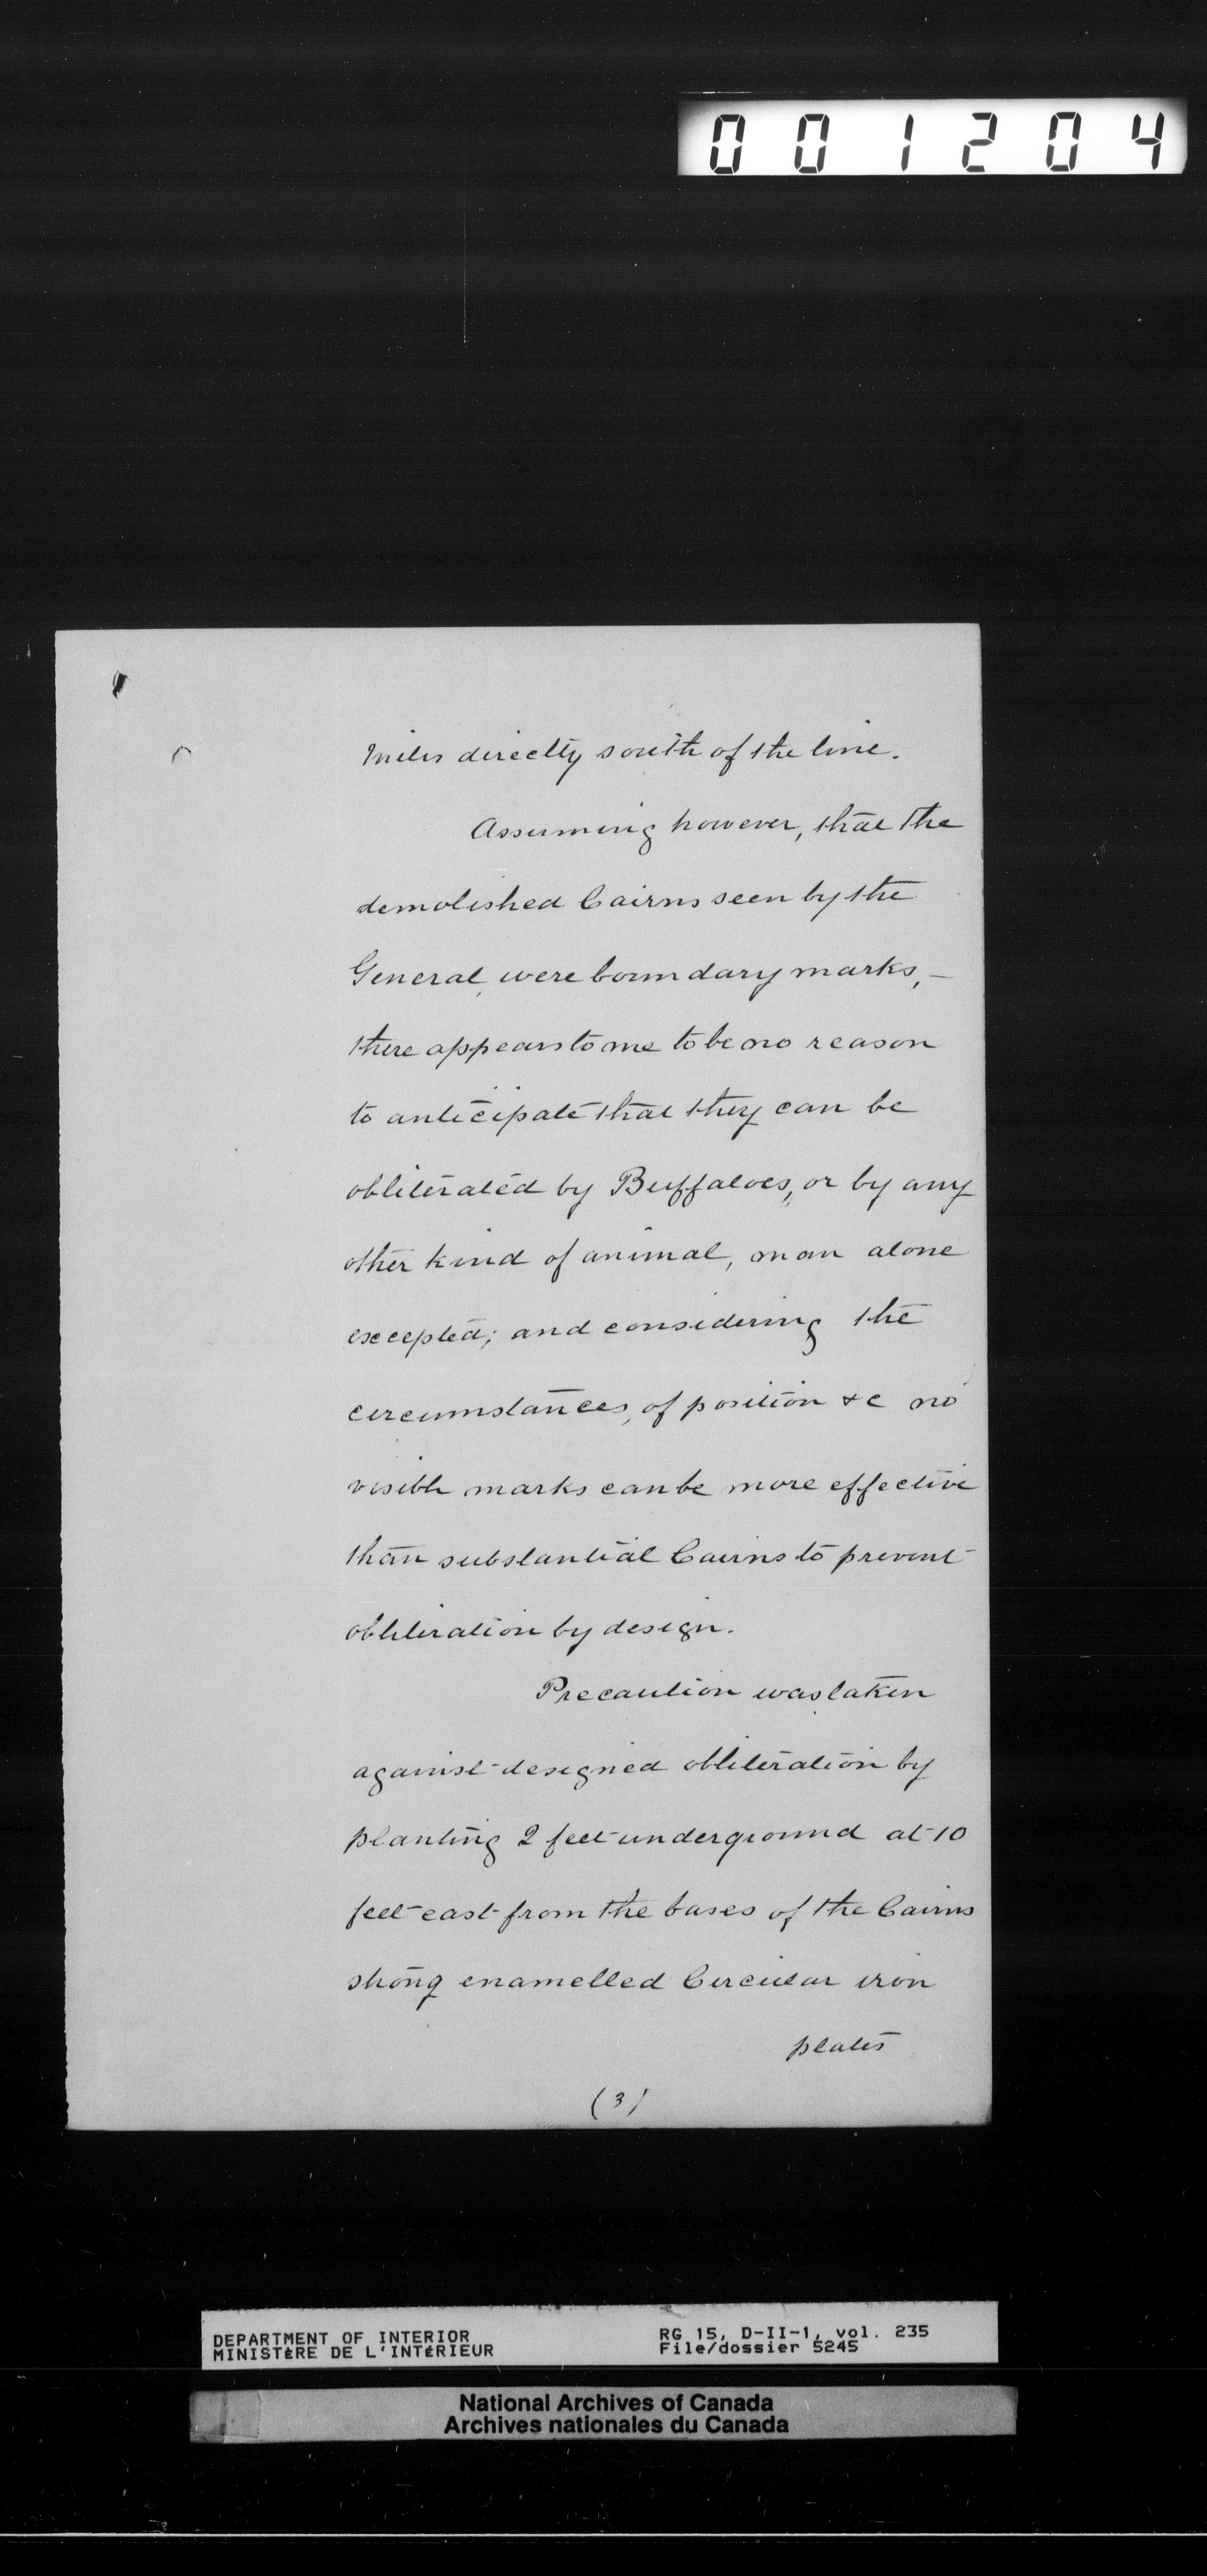 001204
miles directly south of the line.
Assuming however, that the
demolished Cairns seen by the
General, were boundary marks, —
there appears to me to be no reason
to anticipate that they can be
obliterated by Buffaloes, or by any
other kind of animal, man alone
excepted; and considering the
circumstances, of position &c no
visible marks can be more effective
than substantial Cairns to prevent
obliteration by design.
Precaution was taken
against designed obliteration by
planting 2 feet underground at 10
feet east from the bases of the Cairns
strong enamelled Circular iron
plates
(3)
DEPARTMENT OF INTERIOR
MINISTÈRE DE L'INTÉRIEUR
RG 15, D-II-1, vol. 235
File/dossier 5245
National Archives of Canada
Archives nationales du Canada